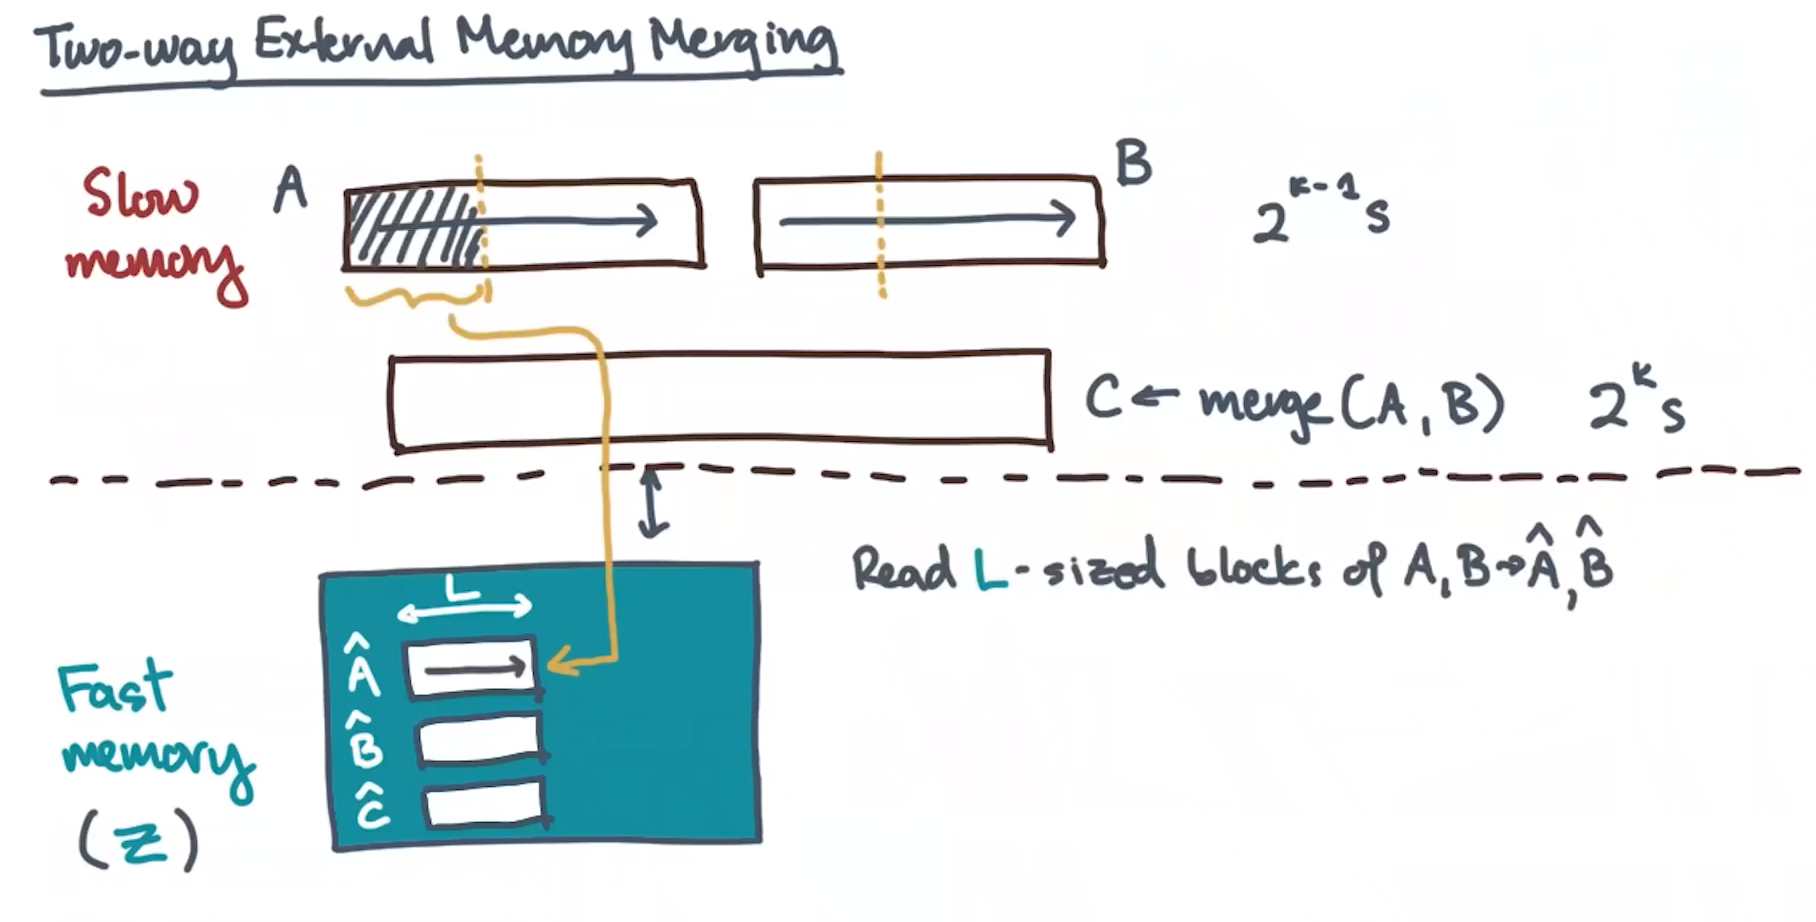 Two-way External Memory Merging
Slow memory
A
B
2^{k-1} s
C ← merge(A, B) 2^k s
Read L-sized blocks of A, B → Â, B̂
Fast memory (Z)
L
Â
B̂
Ĉ